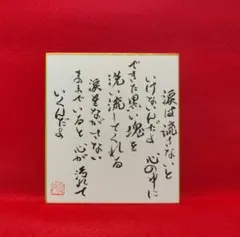 涙は流さないと
いけないんだよ 心の中に
できた黒い塊を
洗い流してくれる
涙をながさない
ままでいると 心が汚れて
いくんだよ